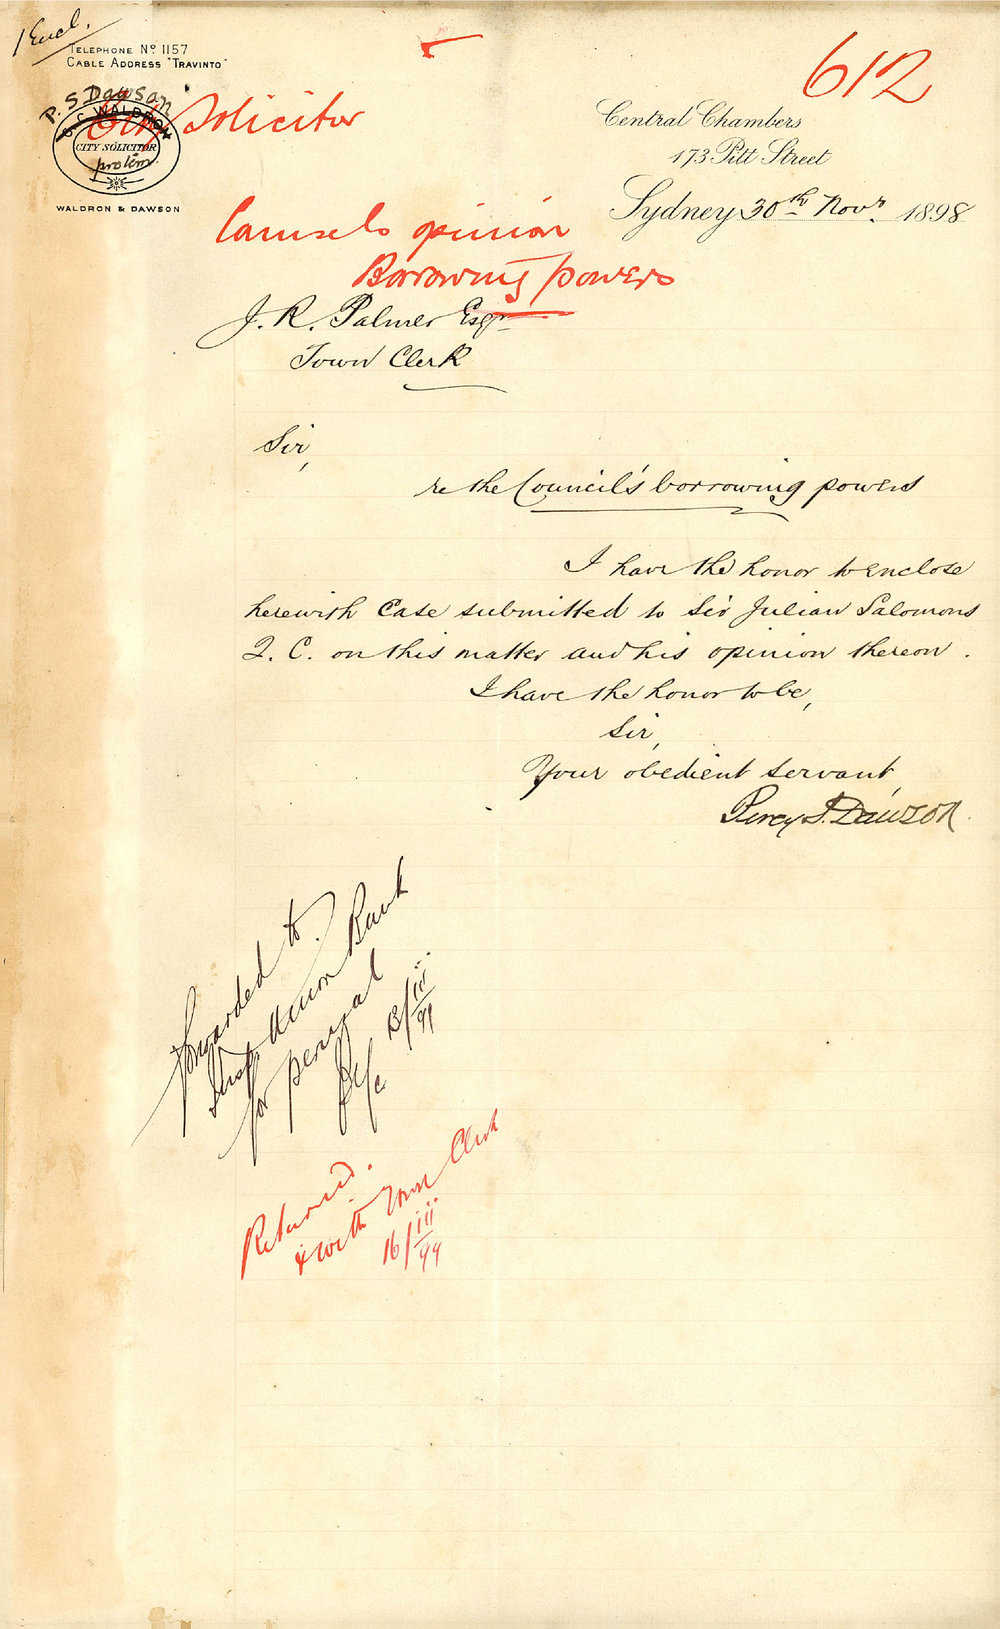 1 Encl.
TELEPHONE Nº 1157
CABLE ADDRESS "TRAVINTO"
612
P. S Dawson
G. C WALDRON
CITY SOLICITOR
protem.
WALDRON & DAWSON
City Solicitor
Central Chambers
173 Pitt Street
Sydney 30th Novr. 1898
Counsels opinion
Borrowing powers
J. R. Palmer Esqr
Town Clerk
Sir,
re the Council's borrowing powers
I have the honor to enclose
herewith Case submitted to Sir Julian Salomons
Q. C. on this matter and his opinion thereon.
I have the honor to be,
Sir,
Your obedient servant,
Percy S. Dawson.
Forwarded to
Union Bank
for perusal
13/iii/99
Returned.
with Town Clerk
16/iii/99